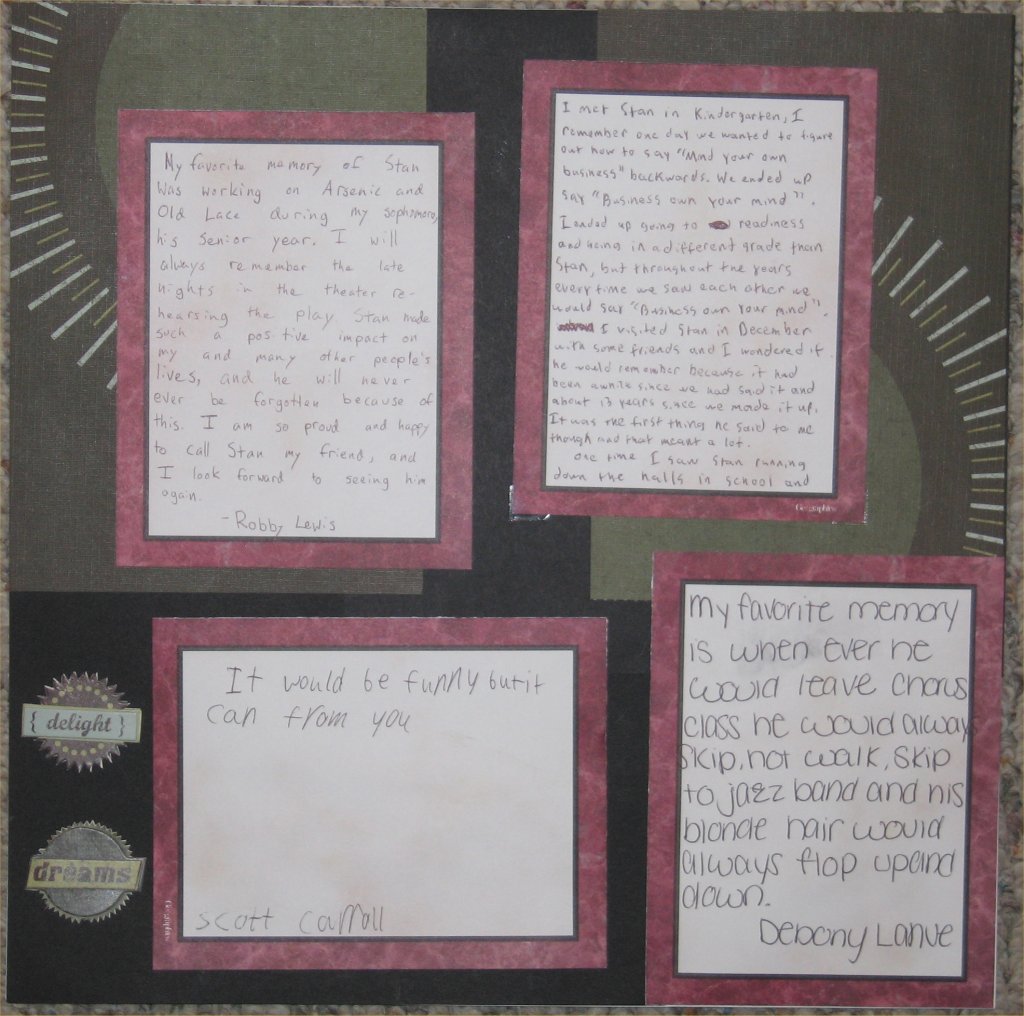 My favorite memory of Stan
was working on Arsenic and
Old Lace during my sophomore,
his senior year. I will
always remember the late
nights in the theater re-
hearsing the play. Stan made
such a positive impact on
my and many other people's
lives, and he will never
ever be forgotten because of
this. I am so proud and happy
to call Stan my friend, and
I look forward to seeing him
again.
-Robby Lewis
I met Stan in Kindergarten, I
remember one day we wanted to figure
out how to say "Mind your own
business" backwards. We ended up
say "Business own your mind".
I ended up going to readiness
and being in a different grade than
Stan, but throughout the years
every time we saw each other we
would say "Business own your mind".
I visited Stan in December
with some friends and I wondered if
he would remember because it had
been awhile since we had said it and
about 13 years since we made it up.
It was the first thing he said to me
though and that meant a lot.
one time I saw Stan running
down the halls in school and
Geographics
It would be funny but it
can from you
scott carroll
Geographics
{ delight }
dreams
My favorite memory
is when ever he
would leave chorus
class he would always
skip, not walk, skip
to jazz band and his
blonde hair would
always flop up and
down.
Debony Lanve